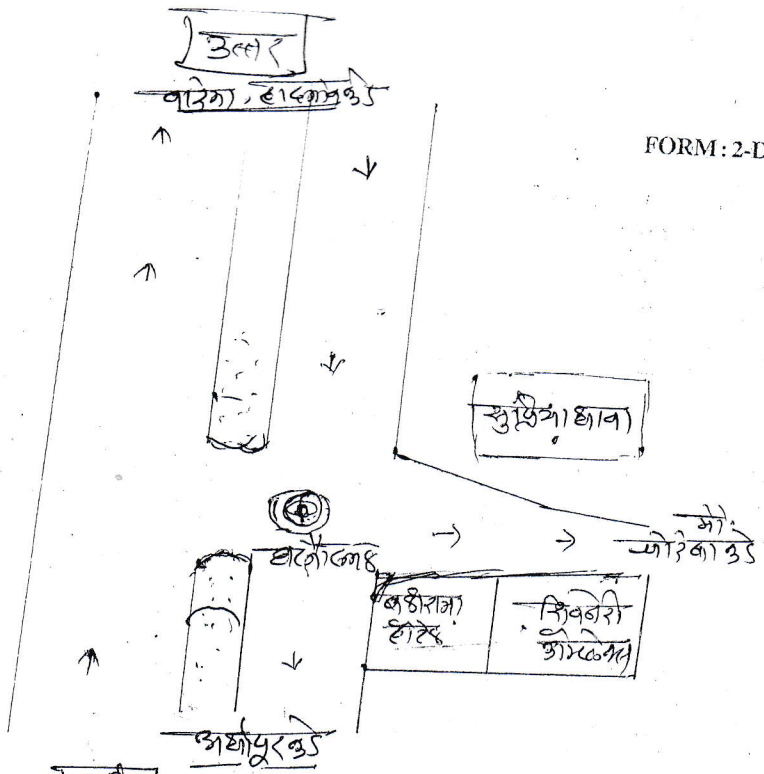 उत्तर
वारंगा, हादगाव कडे
FORM : 2-D
सुप्रिया धाबा
घटनास्थळ
मौ.
कडे
बळीराजा
हॉटेल
शिवनेरी
कॉम्प्लेक्स
अर्धापूर कडे